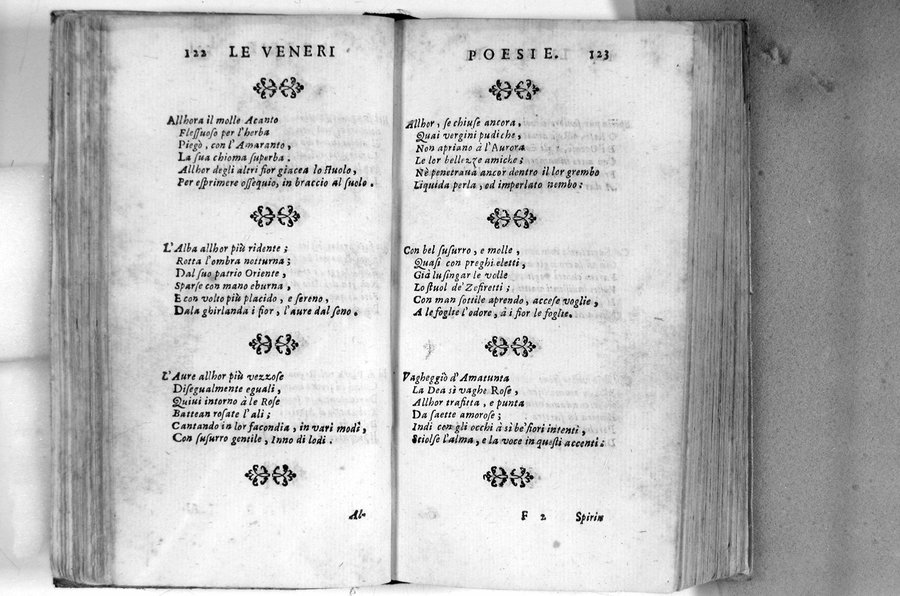 122 LE VENERI
Allhora il molle Acanto
Flessuoso per l'herba
Piegò, con l'Amaranto,
La sua chioma superba.
Allhor degli altri fior giacea lo stuolo,
Per esprimere ossequio, in braccio al suolo.
L'Alba allhor più ridente;
Rotta l'ombra notturna;
Dal suo patrio Oriente,
Sparse con mano eburna,
E con volto più placido, e sereno,
Dala ghirlanda i fior, l'aure dal seno.
L'Aure allhor più vezzose
Disegualmente eguali,
Quiui intorno à le Rose
Battean rosate l'ali;
Cantando in lor facondia, in vari modi,
Con susurro gentile, Inno di lodi.
Al-
POESIE. 123
Allhor, se chiuse ancora,
Quai vergini pudiche,
Non apriano à l'Aurora
Le lor bellezze amiche;
Nè penetraua ancor dentro il lor grembo
Liquida perla, od imperlato nembo:
Con bel susurro, e molle,
Quasi con preghi eletti,
Già lusingar le volle
Lo stuol de' Zefiretti;
Con man sottile aprendo, accese voglie,
A le foglie l'odore, à i fior le foglie.
Vagheggiò d'Amatunta
La Dea sì vaghe Rose,
Allhor trafitta, e punta
Da saette amorose;
Indi con gli occhi à sì be' fiori intenti,
Sciolse l'alma, e la voce in questi accenti:
F 2 Spirin